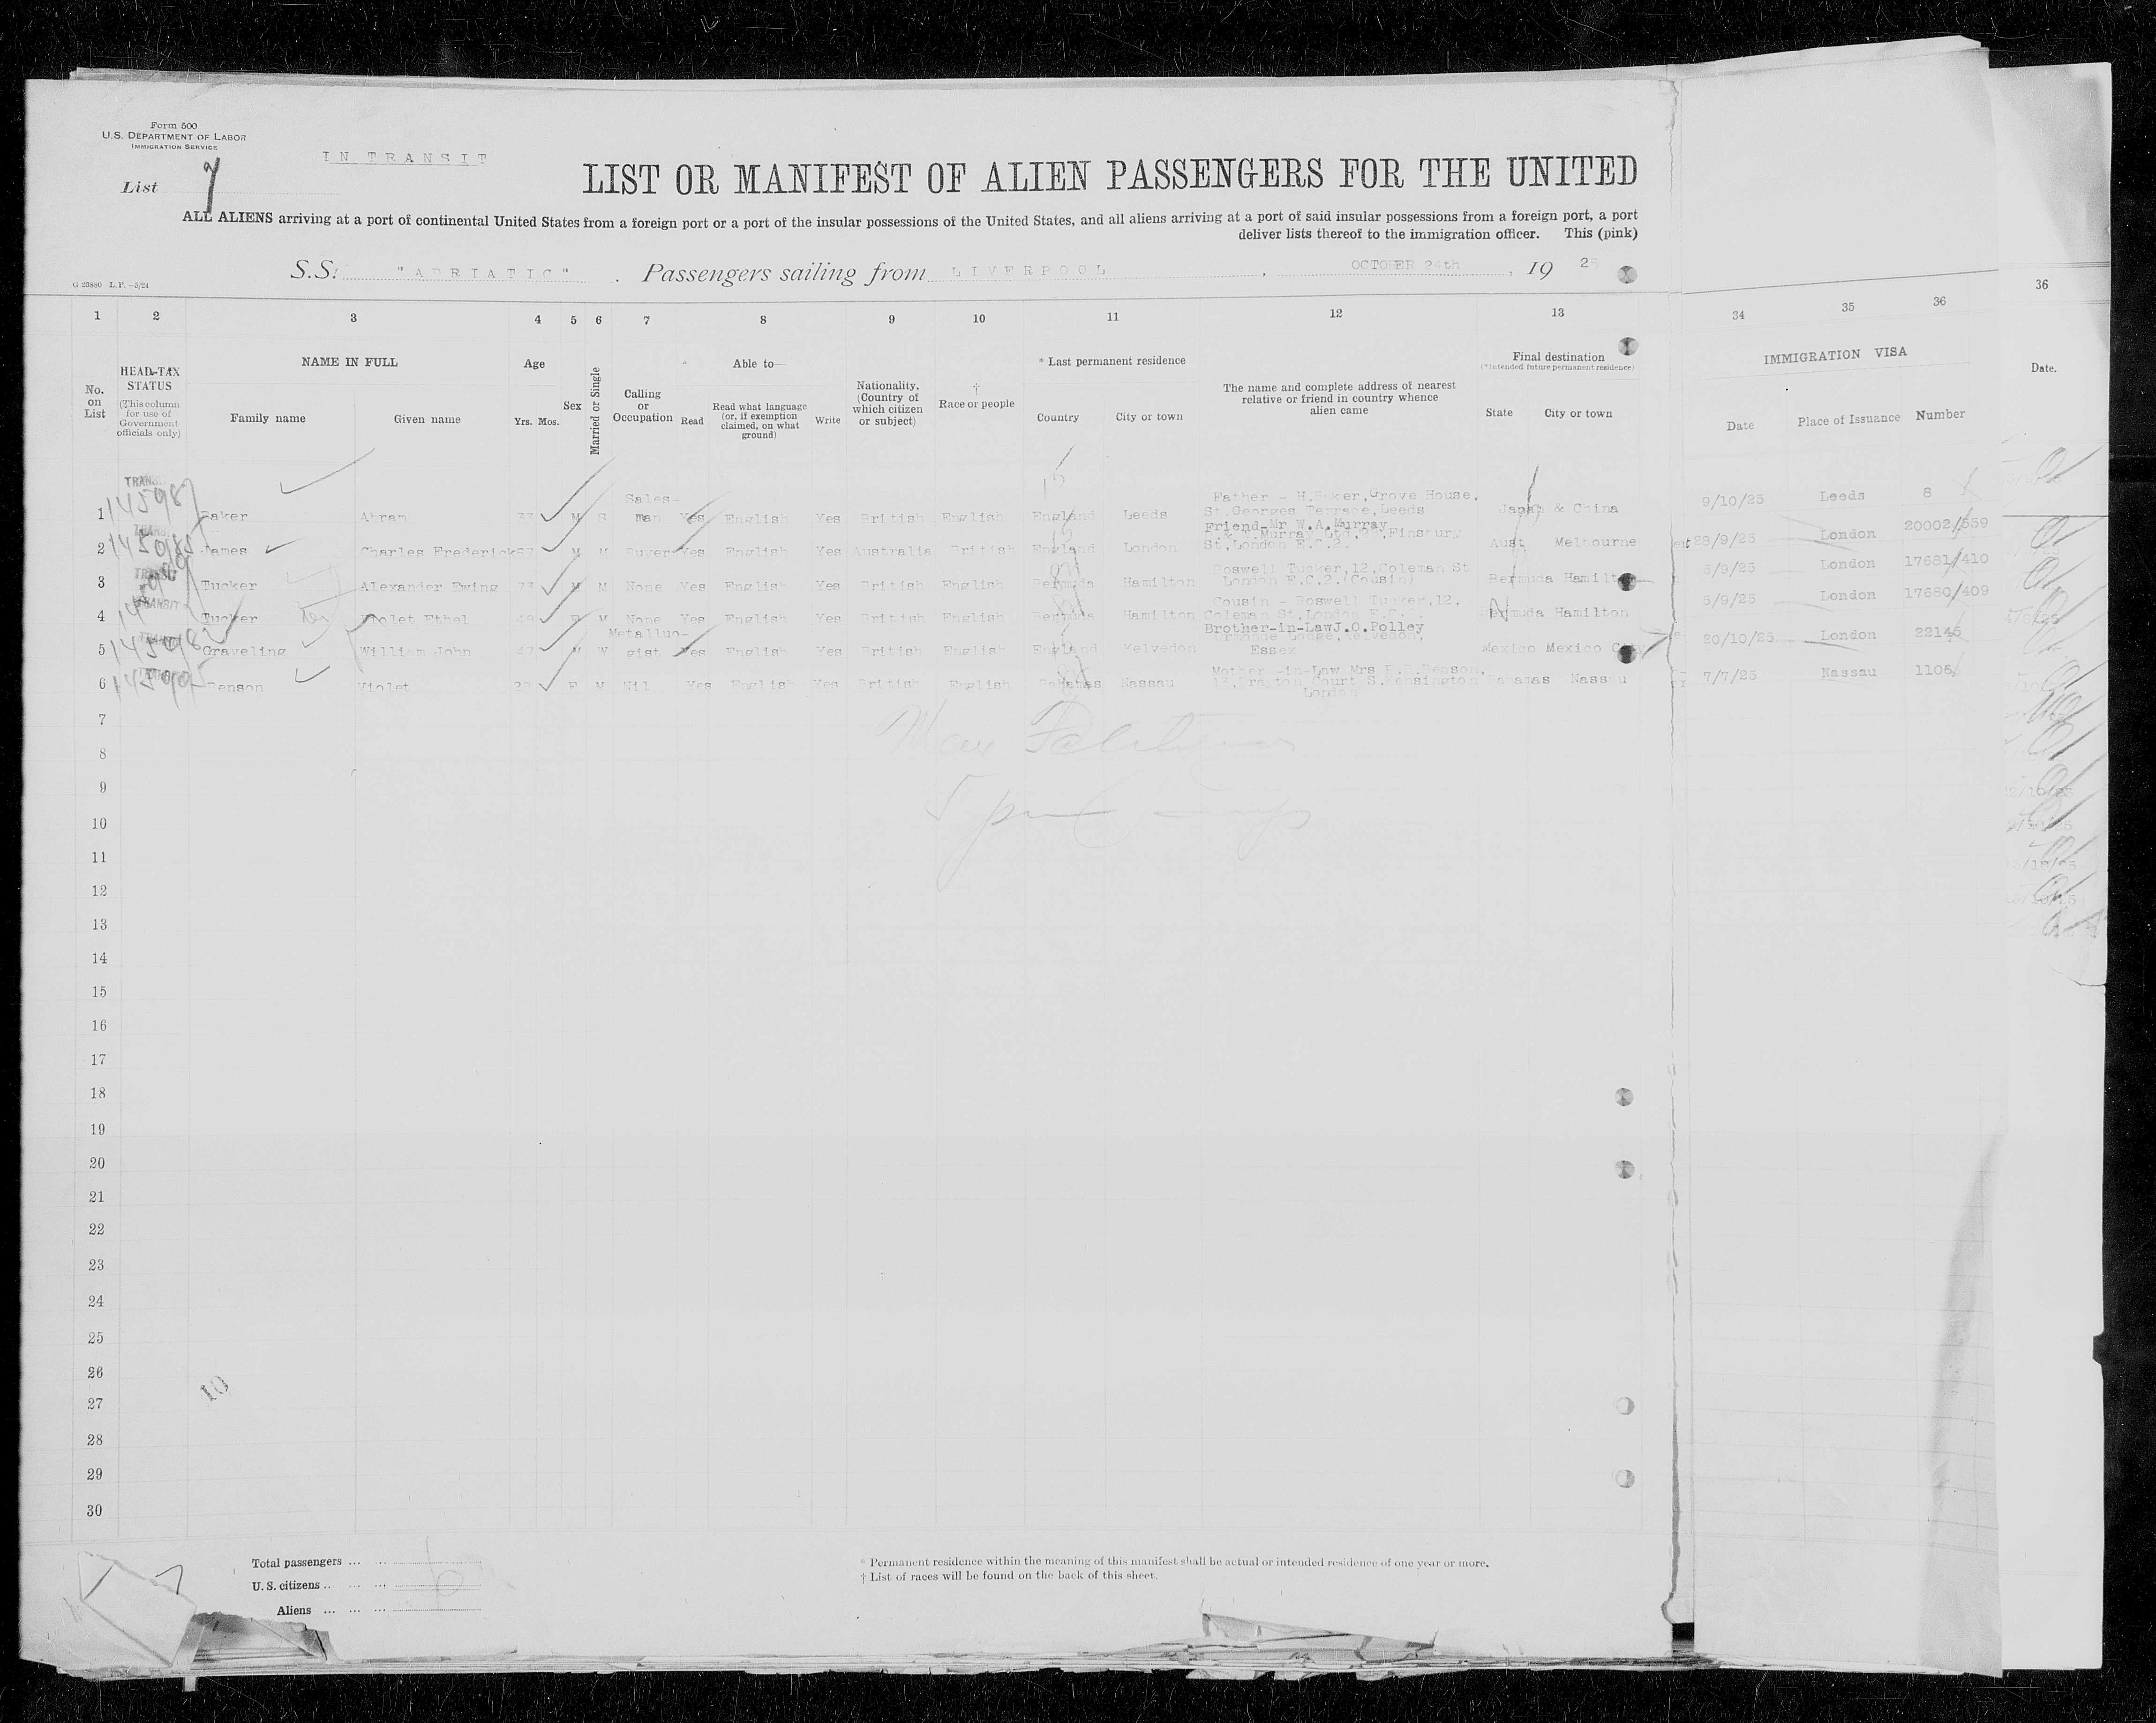 Form 500
U.S. DEPARTMENT OF LABOR
IMMIGRATION SERVICE
IN TRANSIT
List 7
LIST OR MANIFEST OF ALIEN PASSENGERS FOR THE UNITED
ALL ALIENS arriving at a port of continental United States from a foreign port or a port of the insular possessions of the United States, and all aliens arriving at a port of said insular possessions from a foreign port, a port
deliver lists thereof to the immigration officer. This (pink)
S.S. "ADRIATIC" . Passengers sailing from LIVERPOOL , OCTOBER 24th , 19 25
G 23880 L.P. —5/24
1 2 3 4 5 6 7 8 9 10 11 12 13 34 35 36 36
No. on List
HEAD-TAX STATUS
(This column for use of Government officials only)
NAME IN FULL
Family name Given name
Age
Yrs. Mos.
Sex
Married or Single
Calling or Occupation
Able to—
Read
Read what language (or, if exemption claimed, on what ground)
Write
Nationality, (Country of which citizen or subject)
† Race or people
* Last permanent residence
Country City or town
The name and complete address of nearest relative or friend in country whence alien came
Final destination
(*Intended future permanent residence)
State City or town
IMMIGRATION VISA
Date Place of Issuance Number
Date.
1 Baker Abram 33 M S Salesman Yes English Yes British English England Leeds Father - H.Baker, Grove House, St.Georges Terrace, Leeds Japan & China 9/10/25 Leeds 8
2 James Charles Frederick M M Buyer Yes English Yes Australia British England London Friend-Mr W.A.Murray Murray Ltd, Finsbury St, London E.C.2. Aust Melbourne 28/9/25 London 20002/559
3 Tucker Alexander Ewing 73 M M None Yes English Yes British English Bermuda Hamilton Boswell Tucker, 12, Coleman St London E.C.2. (Cousin) Bermuda Hamilton 5/9/25 London 17681/410
4 Tucker Violet Ethel F M None Yes English Yes British English Bermuda Hamilton Cousin - Boswell Tucker, 12, Coleman St, London E.C.2. Bermuda Hamilton 5/9/25 London 17680/409
5 Graveling William John 47 M W Metallurgist Yes English Yes British English England Kelvedon Brother-in-Law J.O.Polley Lodge, Kelvedon, Essex Mexico Mexico City 20/10/25 London 22145
6 Benson Violet F M Nil Yes English Yes British English Bahamas Nassau Mother-in-Law Mrs Benson, 13, Court S.Kensington London Bahamas Nassau 7/7/25 Nassau 1106
7
8
9
10
11
12
13
14
15
16
17
18
19
20
21
22
23
24
25
26
10
27
28
29
30
Total passengers ... ...
U.S. citizens .. ... ...
Aliens ... ... ...
6
* Permanent residence within the meaning of this manifest shall be actual or intended residence of one year or more.
† List of races will be found on the back of this sheet.